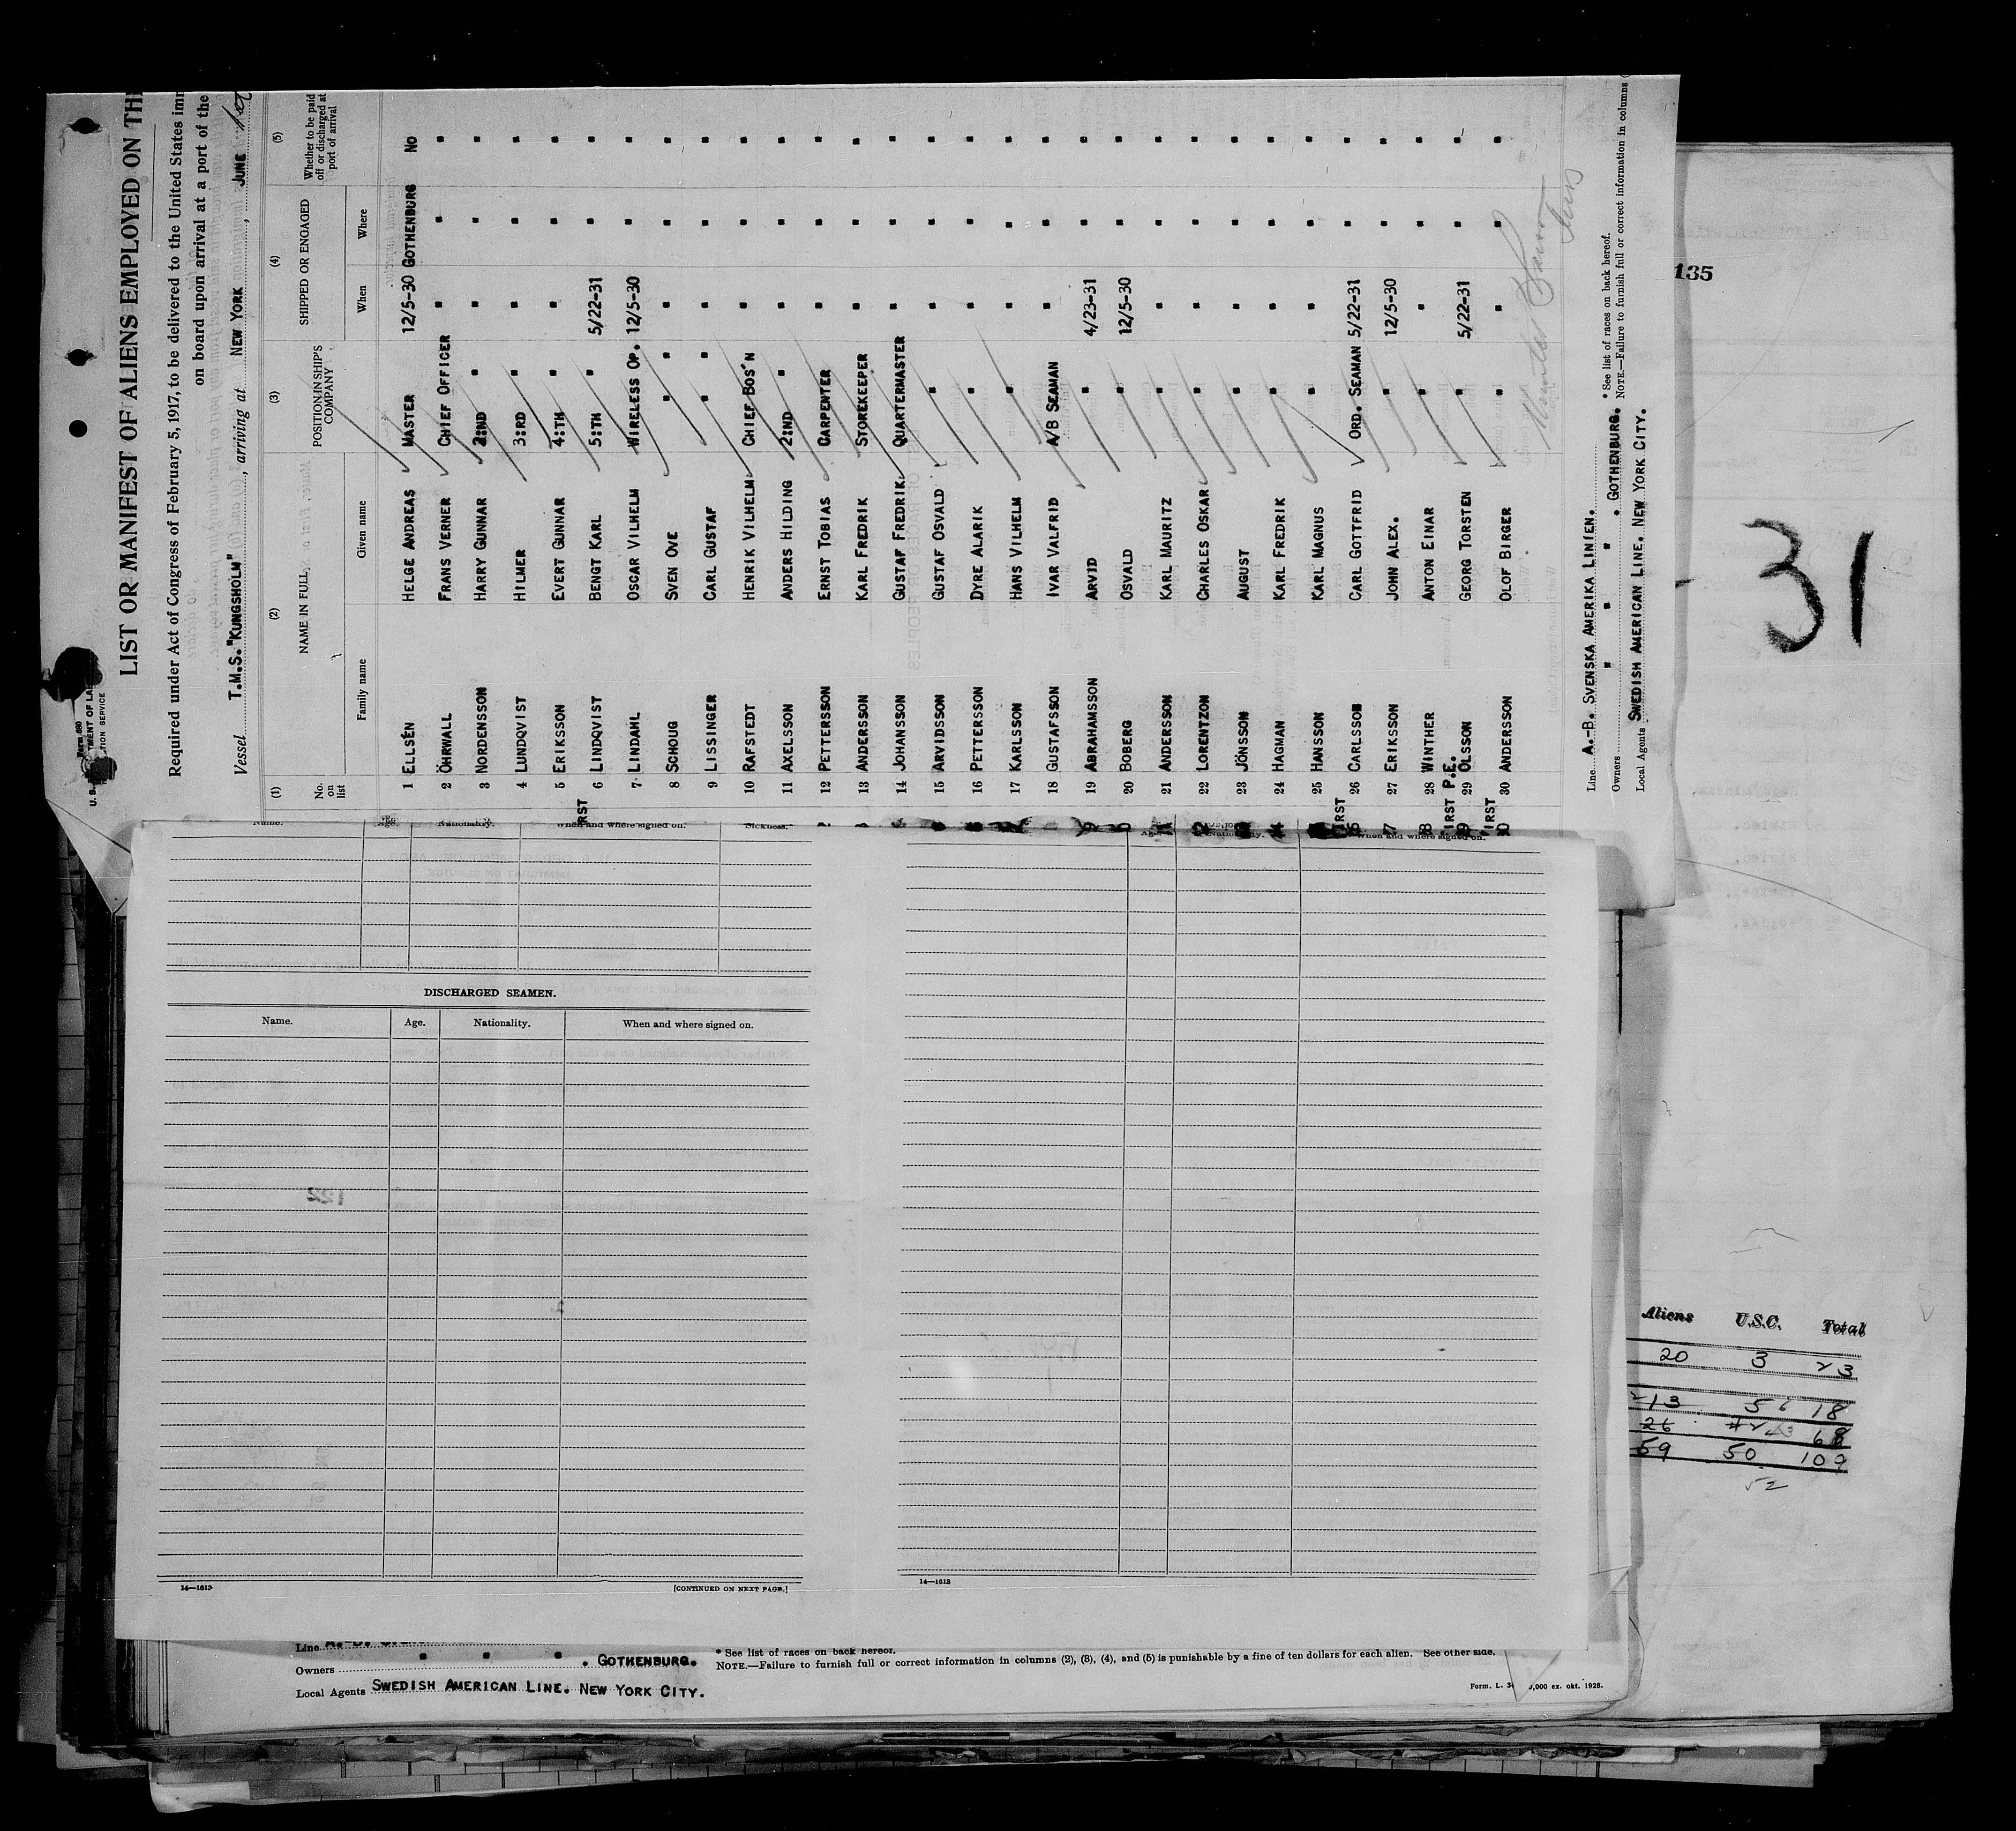 LIST OR MANIFEST OF ALIENS EMPLOYED ON
Required under Act of Congress of February 5, 1917, to be delivered to the United States
on board upon arrival at a port of the
Vessel T.M.S. "KUNGSHOLM", arriving at NEW YORK, JUNE
(1) (2) (3) (4) (5)
No. on list NAME IN FULL POSITION IN SHIP'S COMPANY SHIPPED OR ENGAGED Whether to be paid off or discharged at port of arrival
Family name Given name When Where
1 ELLSÉN HELGE ANDREAS MASTER 12/5-30 GOTHENBURG NO
2 ÖHRWALL FRANS VERNER CHIEF OFFICER " " "
3 NORDENSSON HARRY GUNNAR 2:ND " " " "
4 LUNDQVIST HILMER 3:RD " " " "
5 ERIKSSON EVERT GUNNAR 4:TH " " " "
6 LINDQVIST BENGT KARL 5:TH " 5/22-31 " "
7 LINDAHL OSCAR VILHELM WIRELESS OP. 12/5-30 " "
8 SCHOUG SVEN OVE " " " " "
9 LISSINGER CARL GUSTAF " " " " "
10 RAFSTEDT HENRIK VILHELM CHIEF BOS'N " " "
11 AXELSSON ANDERS HILDING 2:ND " " " "
12 PETTERSSON ERNST TOBIAS CARPENTER " " "
13 ANDERSSON KARL FREDRIK STOREKEEPER " " "
14 JOHANSSON GUSTAF FREDRIK QUARTERMASTER " " "
15 ARVIDSSON GUSTAF OSVALD " " " "
16 PETTERSSON DYRE ALARIK " " " "
17 KARLSSON HANS VILHELM " " " "
18 GUSTAFSSON IVAR VALFRID A/B SEAMAN " " "
19 ABRAHAMSSON ARVID " 4/23-31 " "
20 BOBERG OSVALD " 12/5-30 " "
21 ANDERSSON KARL MAURITZ " " " "
22 LORENTZON CHARLES OSKAR " " " "
23 JÖNSSON AUGUST " " " "
24 HAGMAN KARL FREDRIK " " " "
25 HANSSON KARL MAGNUS " " " "
26 CARLSSON CARL GOTTFRID ORD. SEAMAN 5/22-31 " "
27 ERIKSSON JOHN ALEX. " 12/5-30 " "
28 WINTHER ANTON EINAR " " " "
FIRST P.E.
29 OLSSON GEORG TORSTEN " 5/22-31 " "
30 ANDERSSON OLOF BIRGER " " " "
Line A.-B. SVENSKA AMERIKA LINIEN.
Owners " " " . GOTHENBURG.
Local Agents SWEDISH AMERICAN LINE. NEW YORK CITY.
* See list of races on back hereof.
NOTE.—Failure to furnish full or correct information in columns
135
31
Name. Nationality. When and where signed on. Sickness.
When and where signed on.
DISCHARGED SEAMEN.
Name. Age. Nationality. When and where signed on.
14—1613
[CONTINUED ON NEXT PAGE.]
14—1613
Aliens U.S.C. Total
20 3 23
13 5 6 18
26
59 50 109
52
Line
Owners " " " . GOTHENBURG.
Local Agents SWEDISH AMERICAN LINE. NEW YORK CITY.
* See list of races on back hereof.
NOTE.—Failure to furnish full or correct information in columns (2), (3), (4), and (5) is punishable by a fine of ten dollars for each alien. See other side.
Form. L. ,000 ex. okt. 1928.